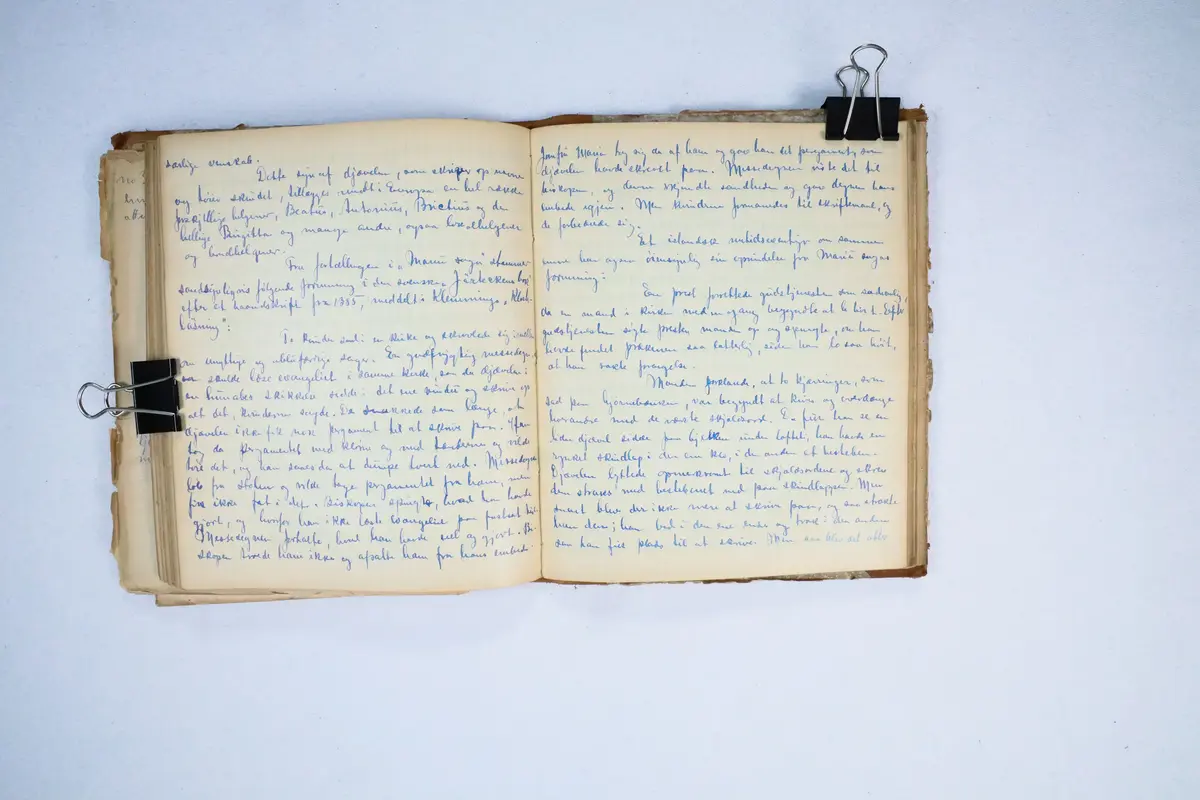 særlige venskab.
Dette syn af djævelen, som skriver op navne
og tørrer skindet, tillægges rundt i Europa en hel række
forskjellige helgener, Beatus, Antonius, Brictius og den
hellige Birgitta og mange andre, ogsaa lokalhelgener
og landhelgener.
Fra fortællingen i „Mariu saga" stammer
sandsynligvis følgende formning i den svenska Järtecken
efter et haandskrift fra 1385, meddelt i Klemmings „Klos
läsning":
To kvinder sad i en kirke og skravlede sig imellem
om unyttige og ubluferdige sager. En gudfrygtig messedegn,
som skulde læse evangeliet i samme kirke, saa da djævelen i
en hunabes skikkelse sidde i det ene vindu og skrive op
alt det, kvinderne sagde. De snakkede saa længe, at
djævelen ikke fik nok pergament til at skrive paa. Han
tog da pergamentet med kløerne og med tænderne og vilde
tøie det, og han saaes da at dumpe bort ned. Messedegnen
løb fra stolen og vilde tage pergamentet fra ham, men
fik ikke fat i det. Biskopen spurgte, hvad han havde
gjort, og hvorfor han ikke læste evangeliet paa fastsat tid.
Messedegnen fortalte, hvad han havde seet og gjort. Bi-
skopen troede ham ikke og afsatte ham fra hans embede.
Jomfru Maria tog sig da af ham og gav ham det pergament, som
djævelen havde skrevet paa. Messedegnen viste det til
biskopen, og denne skjønte sandheden og gav degnen hans
embede igjen. Men kvinderne formanedes til skriftemaal, og
de forbedrede sig.
Et islandsk middelseventyr om samme
emne har ogsaa øiensynlig sin oprindelse fra Mariu sagas
formning:
En prest forrettede gudstjenesten som sædvanlig,
da en mand i kirken med engang begyndte at le høit. Efter
gudstjenesten søgte presten manden op og spurgte, om han
havde fundet prækenen saa latterlig, siden han lo saa høit,
at han vakte forargelse.
Manden forklarede, at to kjærringer, som
sad paa hjørnebænken, var begyndt at kives og overdænge
hverandre med de værste skjældsord. En fik han se en
liden djævel sidde paa bjelken under loftet, han havde en
rynket skindlap i den ene klo, i den anden et hesteben.
Djævelen lyttede opmerksomt til skjældsordene og skrev
dem straks med hestebenet ned paa skindlappen. Men
snart blev der ikke mere at skrive paa, og saa strakte
han den; han bed i den ene ende og trak i den anden
saa han fik plads til at skrive. Men saa blev det atter